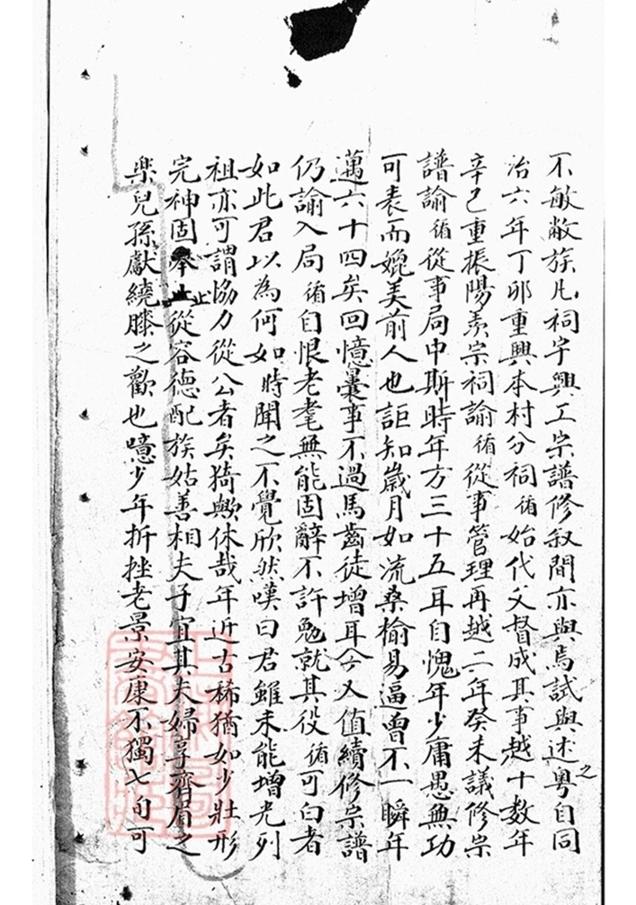 不敏敝族凡祠宇興工宗譜修敘間亦與焉試與述之粵自同
治六年丁卯重興本村分祠循始代父督成其事越十数年
辛巳重振陽羨宗祠諭循從事管理再越二年癸未議修宗
譜諭循從事局中斯時年方三十五耳自愧年少庸愚無功
可表而媲美前人也詎知歲月如流桑榆易逼曾不一瞬年
邁六十四矣回憶曩事不過馬齒徒增耳今又值續修宗譜
仍諭入局循自恨老耄無能固辭不許勉就其役循可白者
如此君以為何如時聞之不覺欣然嘆曰君雖未能增光列
祖亦可謂協力從公者矣猗歟休哉年近古稀猶如少壯形
完神固舉止從容德配族姑善相夫子宜其夫婦享齊眉之
樂兒孫獻繞膝之歡也噫少年折挫老景安康不獨七旬可